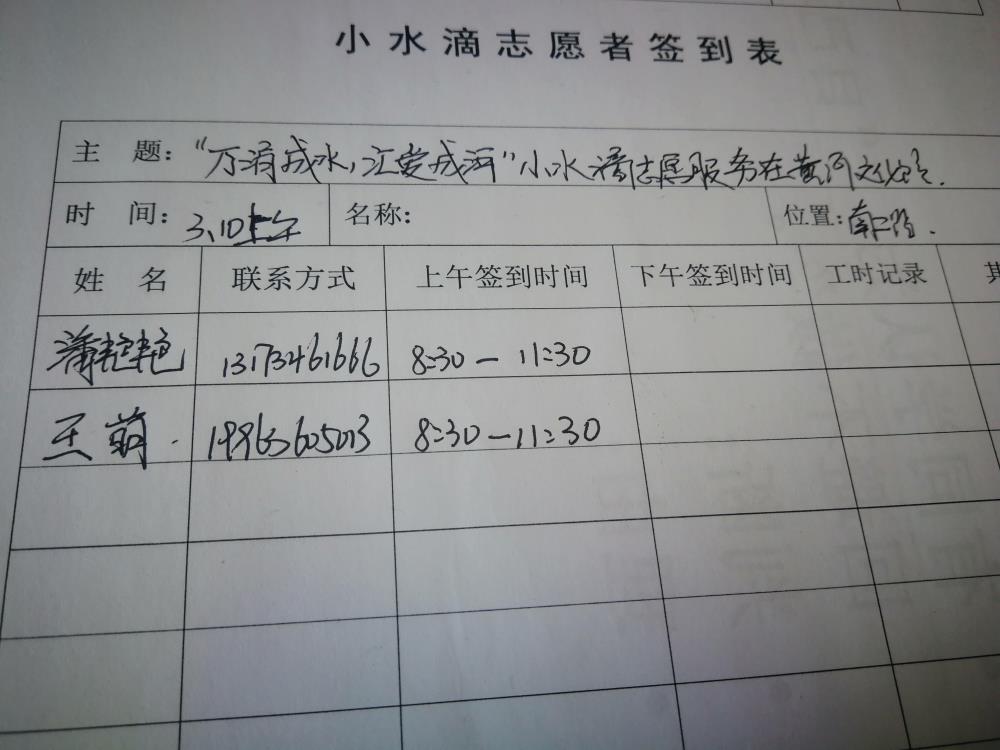 小水滴志愿者签到表
主 题：“万涓成水，汇爱成河”小水滴志愿服务在黄河
时 间：3.10上午 名称： 位置：南二路.
姓 名 联系方式 上午签到时间 下午签到时间 工时记录
蒲艳艳 13173461666 8:30 — 11:30
王萌. 19963605013 8:30 — 11:30